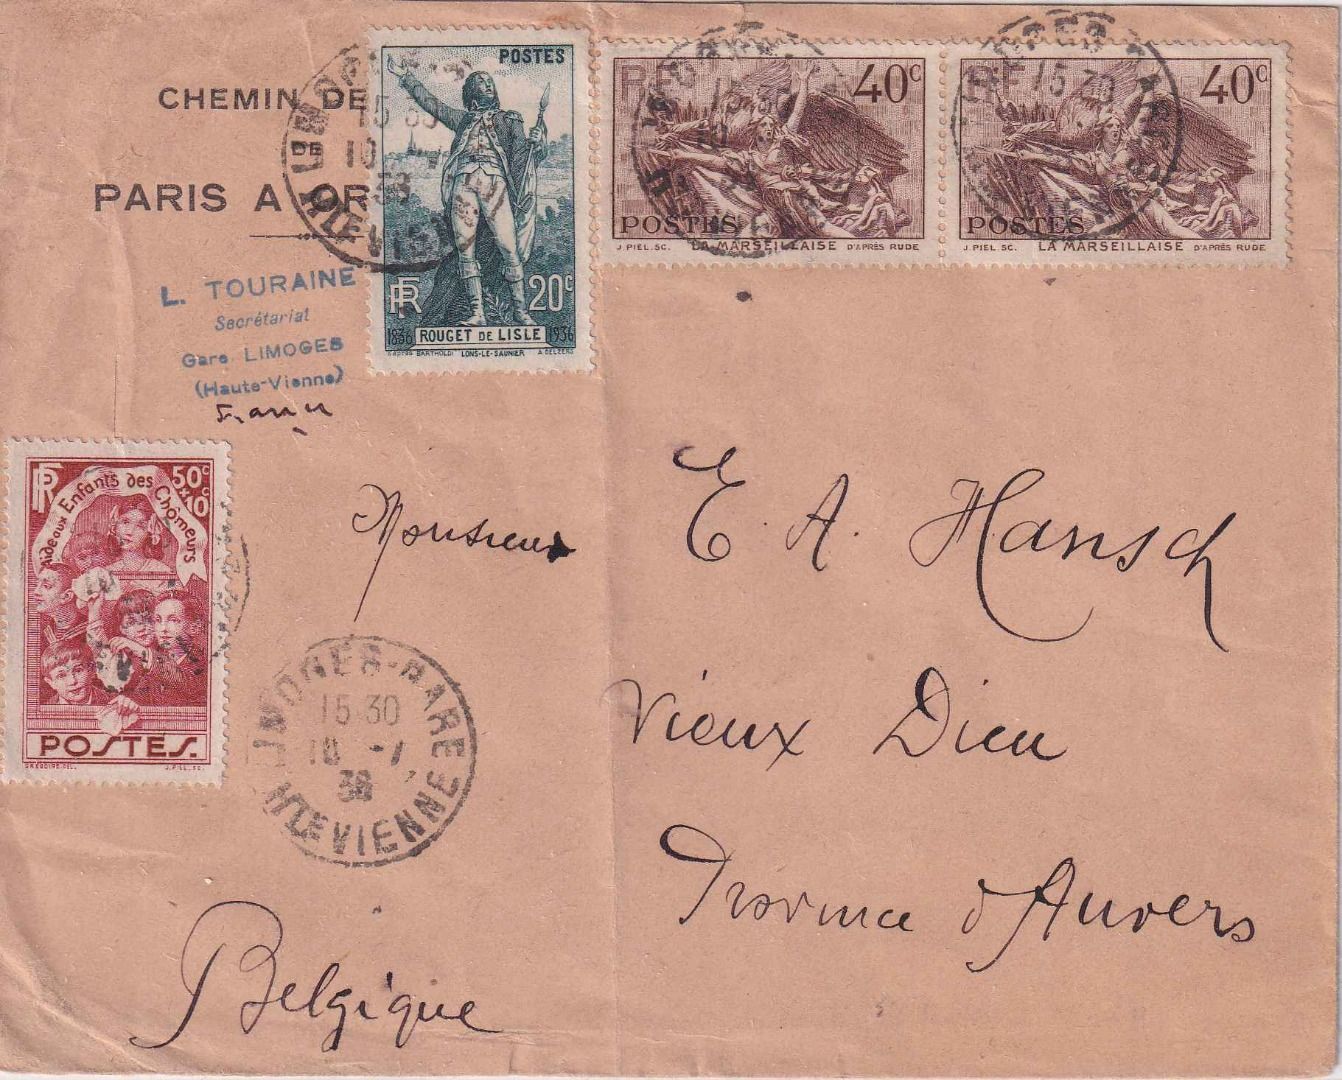 CHEMIN DE
DE
PARIS A OR
L. TOURAINE
Secrétariat
Gare LIMOGES
(Haute-Vienne)
France
POSTES
20c
RF
1836 ROUGET DE LISLE 1936
D'APRÈS BARTHOLDI LONS-LE-SAUNIER A. DELZERS
RF 40c
POSTES
J. PIEL. SC. LA MARSEILLAISE D'APRÈS RUDE
RF 40c
POSTES
J. PIEL. SC. LA MARSEILLAISE D'APRÈS RUDE
RF 50c
+10c
Aide aux Enfants des Chômeurs
POSTES.
J. PIEL. SC.
LIMOGES-GARE
15 30
10 -1
38
HTE VIENNE
Monsieur
E. A. Hansch
Vieux Dieu
Province d'Anvers
Belgique